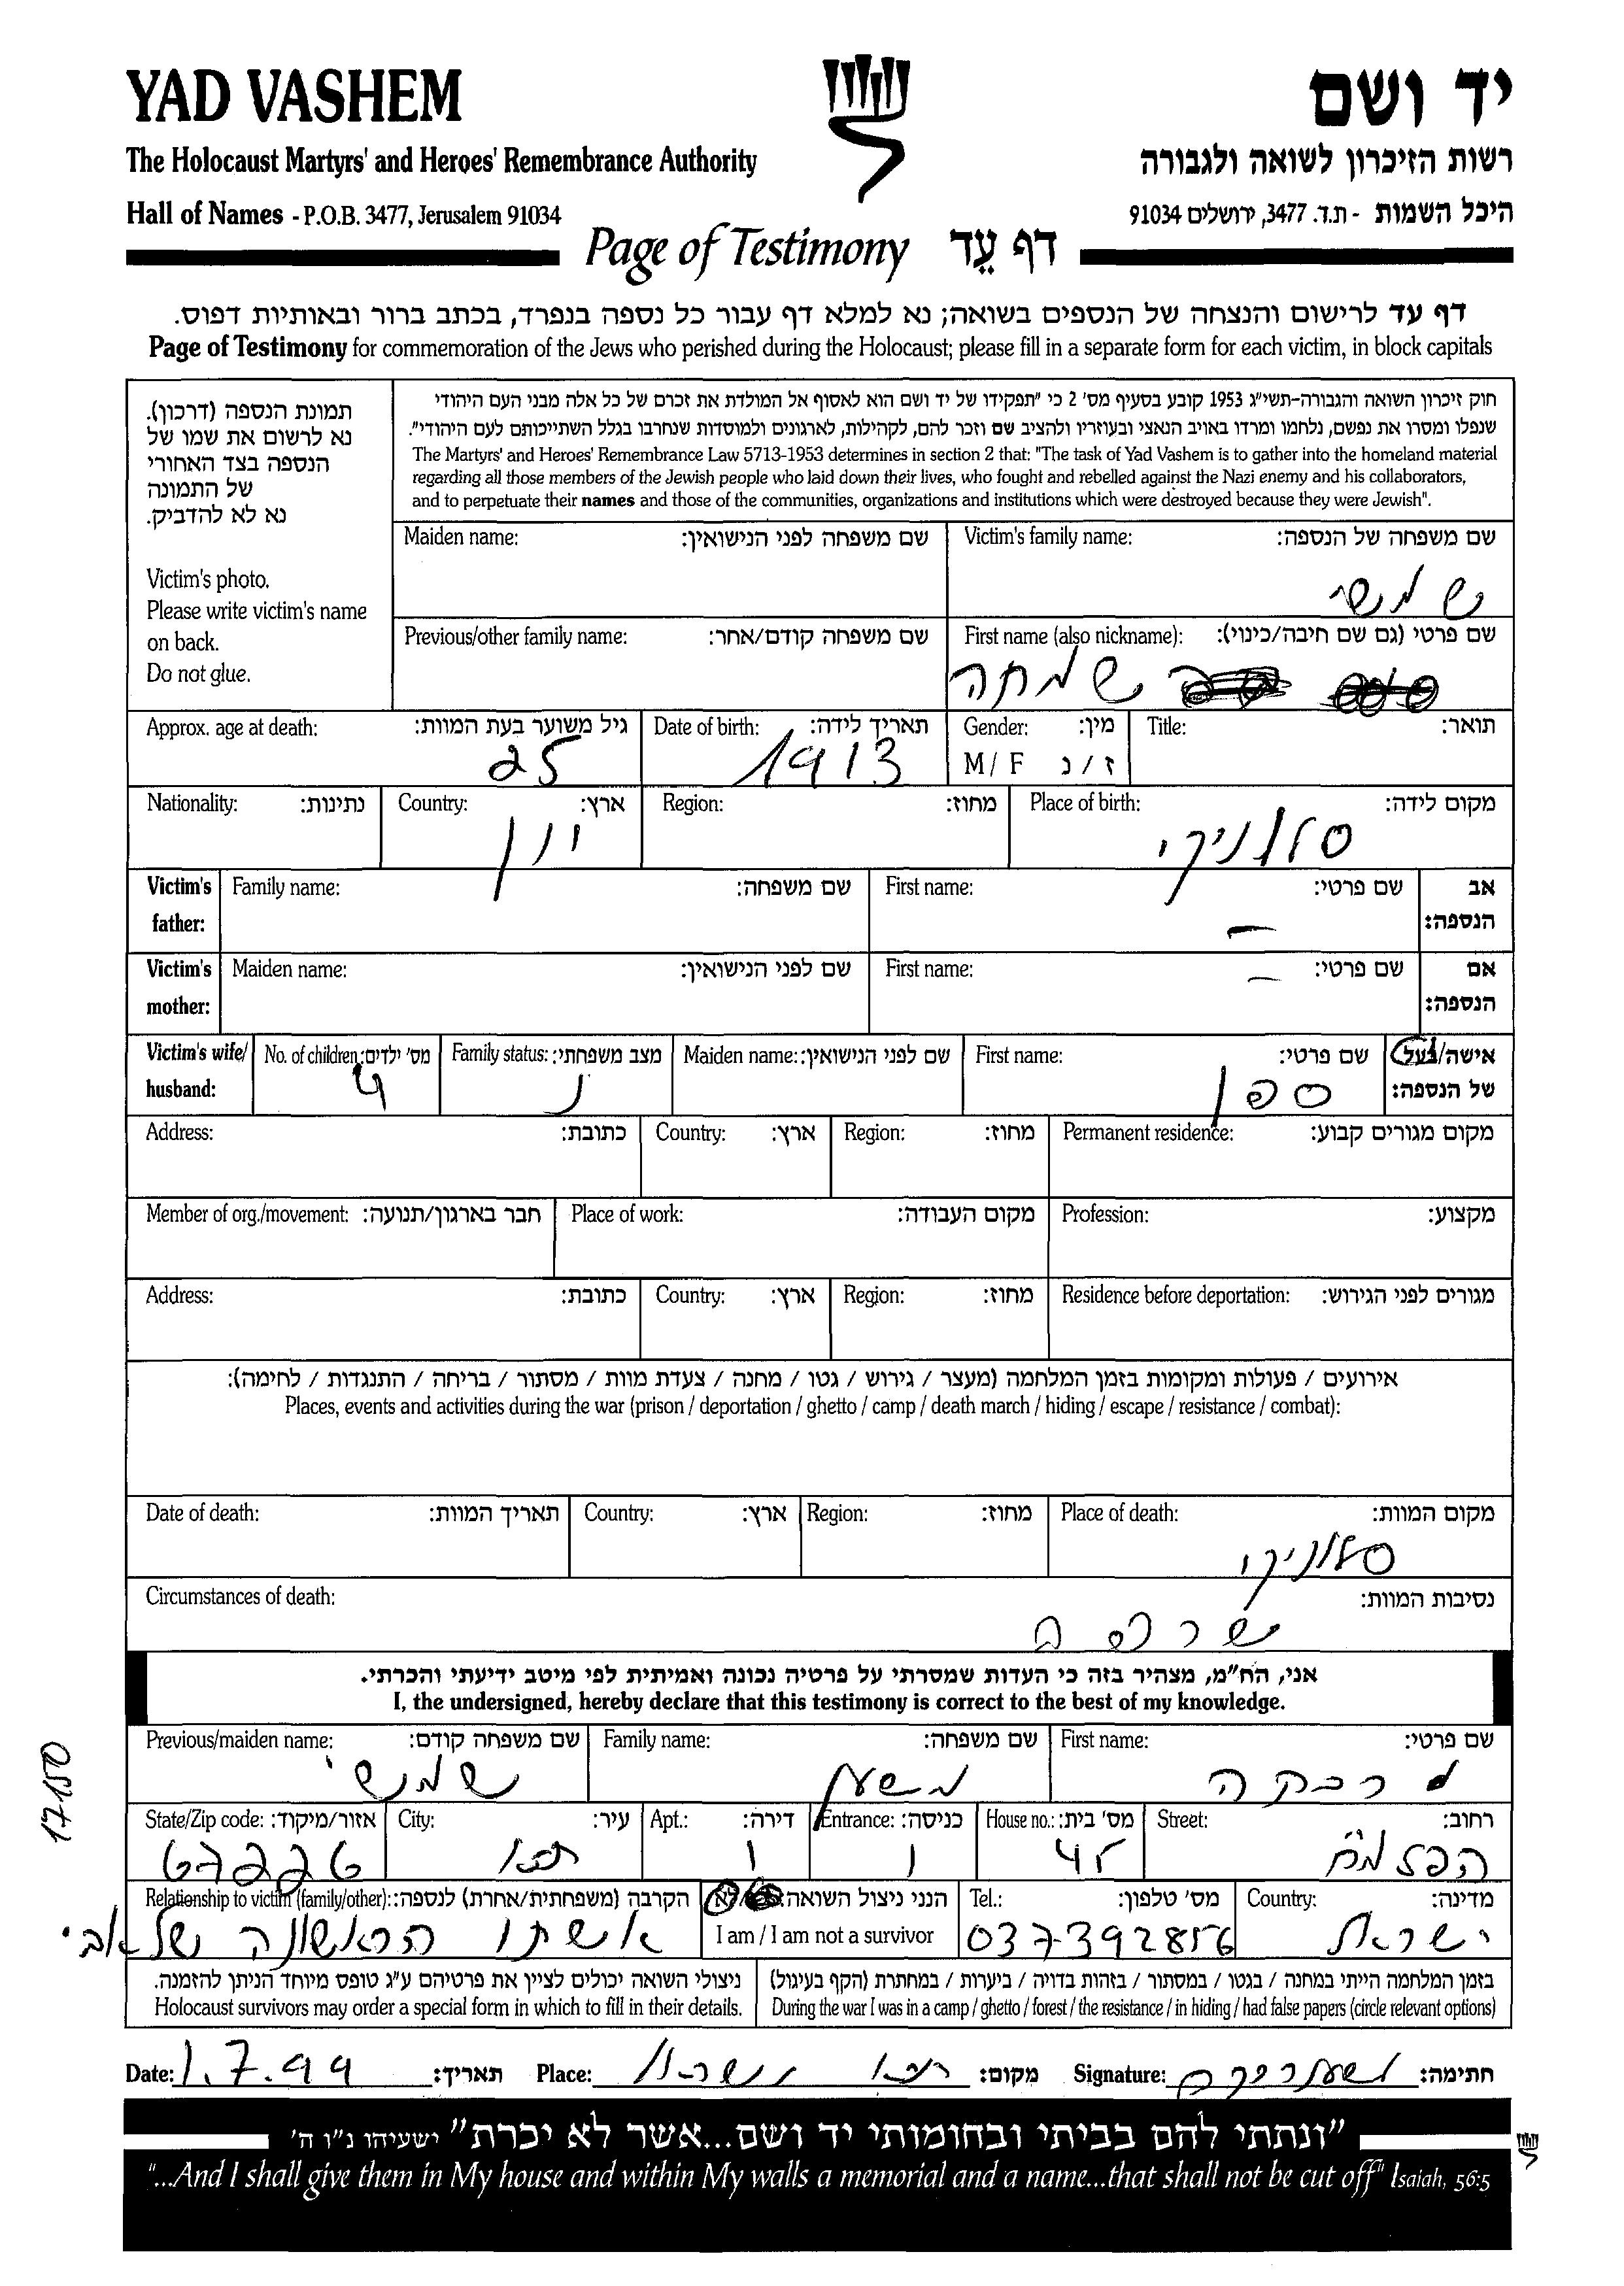 YAD VASHEM
יד ושם
The Holocaust Martyrs' and Heroes' Remembrance Authority
רשות הזיכרון לשואה ולגבורה
Hall of Names - P.O.B. 3477, Jerusalem 91034
היכל השמות - ת.ד. 3477, ירושלים 91034
Page of Testimony דף עֵד
דף עד לרישום והנצחה של הנספים בשואה; נא למלא דף עבור כל נספה בנפרד, בכתב ברור ובאותיות דפוס.
Page of Testimony for commemoration of the Jews who perished during the Holocaust; please fill in a separate form for each victim, in block capitals
תמונת הנספה (דרכון).
נא לרשום את שמו של
הנספה בצד האחורי
של התמונה
נא לא להדביק.
Victim's photo.
Please write victim's name
on back.
Do not glue.
חוק זיכרון השואה והגבורה-תשי"ג 1953 קובע בסעיף מס' 2 כי "תפקידו של יד ושם הוא לאסוף אל המולדת את זכרם של כל אלה מבני העם היהודי
שנפלו ומסרו את נפשם, נלחמו ומרדו באויב הנאצי ובעוזריו ולהציב שם וזכר להם, לקהילות, לארגונים ולמוסדות שנחרבו בגלל השתייכותם לעם היהודי".
The Martyrs' and Heroes' Remembrance Law 5713-1953 determines in section 2 that: "The task of Yad Vashem is to gather into the homeland material
regarding all those members of the Jewish people who laid down their lives, who fought and rebelled against the Nazi enemy and his collaborators,
and to perpetuate their names and those of the communities, organizations and institutions which were destroyed because they were Jewish".
Victim's family name: שם משפחה של הנספה:
שמשי
Maiden name: שם משפחה לפני הנישואין:
First name (also nickname): שם פרטי (גם שם חיבה/כינוי):
שמחה
Previous/other family name: שם משפחה קודם/אחר:
Title: תואר:
Gender: מין:
M / F ז / נ
Date of birth: תאריך לידה:
1913
Approx. age at death: גיל משוער בעת המוות:
25
Place of birth: מקום לידה:
סלוניקי
Region: מחוז:
Country: ארץ:
יוון
Nationality: נתינות:
אב הנספה:
First name: שם פרטי:
–
Family name: שם משפחה:
Victim's father:
אם הנספה:
First name: שם פרטי:
–
Maiden name: שם לפני הנישואין:
Victim's mother:
אישה/בעל של הנספה:
First name: שם פרטי:
Maiden name: שם לפני הנישואין:
Family status: מצב משפחתי:
נ
No. of children: מס' ילדים:
4
Victim's wife/ husband:
Permanent residence: מקום מגורים קבוע:
Region: מחוז:
Country: ארץ:
Address: כתובת:
Profession: מקצוע:
Place of work: מקום העבודה:
Member of org./movement: חבר בארגון/תנועה:
Residence before deportation: מגורים לפני הגירוש:
Region: מחוז:
Country: ארץ:
Address: כתובת:
אירועים / פעולות ומקומות בזמן המלחמה (מעצר / גירוש / גטו / מחנה / צעדת מוות / מסתור / בריחה / התנגדות / לחימה):
Places, events and activities during the war (prison / deportation / ghetto / camp / death march / hiding / escape / resistance / combat):
Place of death: מקום המוות:
סלוניקי
Region: מחוז:
Country: ארץ:
Date of death: תאריך המוות:
Circumstances of death: נסיבות המוות:
אני, הח"מ, מצהיר בזה כי העדות שמסרתי על פרטיה נכונה ואמיתית לפי מיטב ידיעתי והכרתי.
I, the undersigned, hereby declare that this testimony is correct to the best of my knowledge.
First name: שם פרטי:
רבקה
Family name: שם משפחה:
משען
Previous/maiden name: שם משפחה קודם:
שמשי
Street: רחוב:
הפלמח
House no.: מס' בית:
45
Entrance: כניסה:
1
Apt.: דירה:
1
City: עיר:
State/Zip code: אזור/מיקוד:
67226
Country: מדינה:
ישראל
Tel.: מס' טלפון:
037392856
הנני ניצול השואה: כן/לא
I am / I am not a survivor
Relationship to victim (family/other): הקרבה (משפחתית/אחרת) לנספה:
אשתו הראשונה של אבי
בזמן המלחמה הייתי במחנה / בגטו / במסתור / בזהות בדויה / ביערות / במחתרת (הקף בעיגול)
During the war I was in a camp / ghetto / forest / the resistance / in hiding / had false papers (circle relevant options)
ניצולי השואה יכולים לציין את פרטיהם ע"ג טופס מיוחד הניתן להזמנה.
Holocaust survivors may order a special form in which to fill in their details.
17150
Date: 1.7.99 תאריך:
Place: ישראל מקום:
Signature: חתימה:
"ונתתי להם בביתי ובחומותי יד ושם...אשר לא יכרת" ישעיהו נ"ו ה'
"...And I shall give them in My house and within My walls a memorial and a name...that shall not be cut off" Isaiah, 56:5